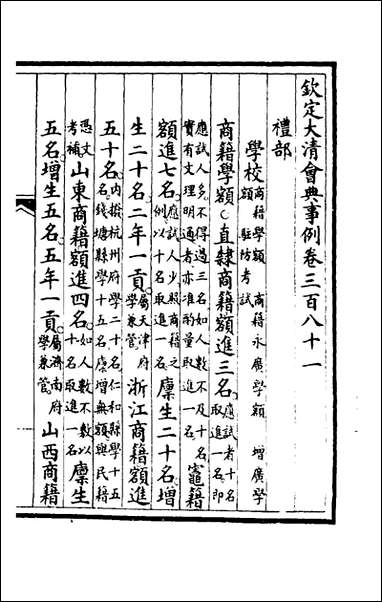 欽定大清會典事例卷三百八十一
禮部
學校商籍學額 商籍永廣學額 增廣學額 駐防考試
商籍學額○直隸商籍額進三名應試者十名取進一名即
應試人多不得過三名如人數不及十名實有文理明通者亦准酌量取進一名竈籍
額進七名應試人少照商籍之例以十名取進一名廩生二十名增
生二十名二年一貢屬天津府學兼管浙江商籍額進
五十名內撥杭州府學二十名仁和縣學十五名錢塘縣學十五名增無額與民籍
憑文考補山東商籍額進四名如人數不敷以十名取進一名廩生
五名增生五名五年一貢屬濟南府學兼管山西商籍